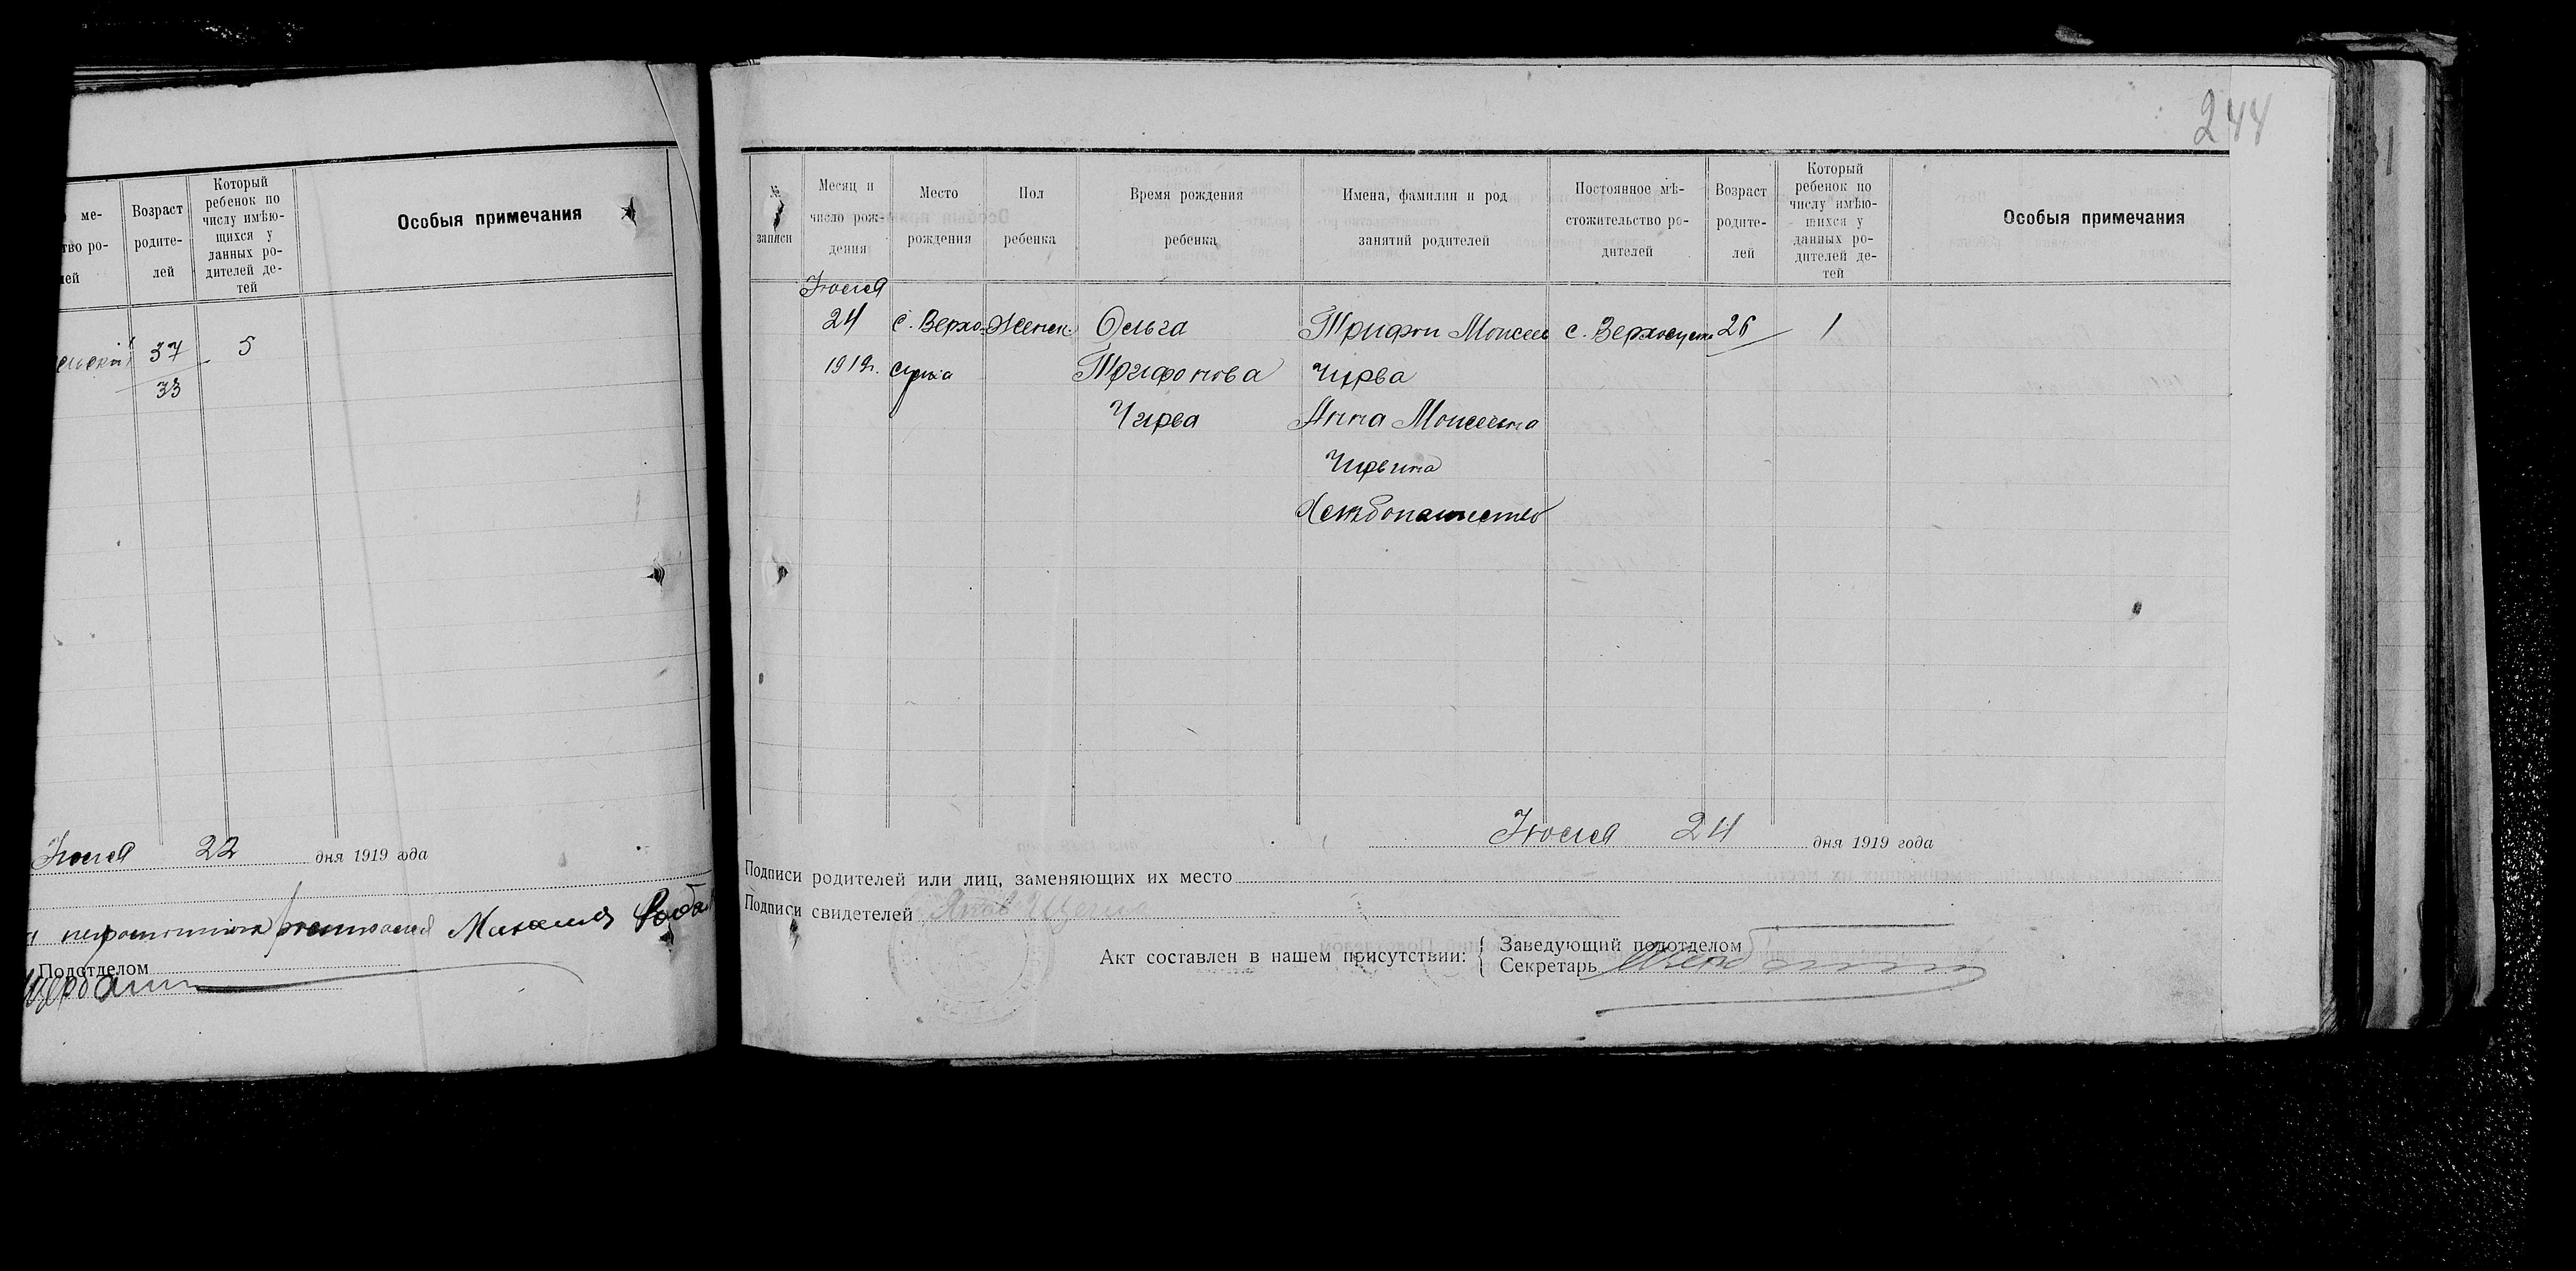 244
ме-
тво ро-
лей
Возраст
родите-
лей
Который
ребенок по
числу имѣю-
щихся у
данных ро-
дителей де-
тей
Особыя примечания
37
33
5
Июля 22 дня 1919 года
Подотделом
№
записи
Месяц и
число рож-
дения
Место
рождения
Пол
ребенка
Время рождения
ребенка
Имена, фамилии и род
занятий родителей
Постоянное мѣ-
стожительство ро-
дителей
Возраст
родите-
лей
Который
ребенок по
числу имѣю-
щихся у
данных ро-
дителей де-
тей
Особыя примечания
Июля
24 с. Верхо- Женск. Ольга Трифон Моисеев с. 26 1
1919г. Трифонова Чирва
Чирва Анна Моисеевна
Чирвина
Хлебопашество
Июля 24 дня 1919 года
Подписи родителей или лиц, заменяющих их место
Подписи свидетелей
Акт составлен в нашем присутствии:
Заведующий подотделом
Секретарь